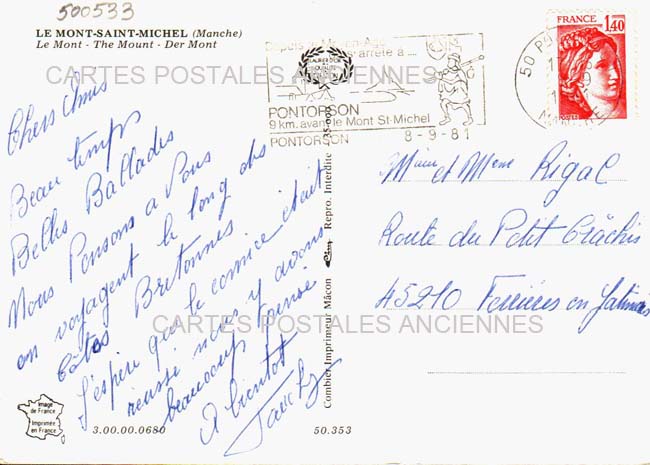 500533
LE MONT-SAINT-MICHEL (Manche)
Le Mont - The Mount - Der Mont
CARTES POSTALES ANCIENNES
PONTORSON
9 km. avant le Mont St-Michel
PONTORSON
8-9-81
FRANCE
1,40
50
Chers Amis
Beau temps
Belles Ballades
Nous Pensons a Vous
en voyageant le long des
Côtes Bretonnes
J'espère que le comice était
réussi nous y avons
beaucoup pensé
A bientôt
Combier Imprimeur Mâcon
Repro. Interdite
Rigal
Route du Petit Crâchis
45210 Ferrières en Gatinais
CARTES POSTALES ANCIENNES
Image
de France
Imprimée
en France
3.00.00.0680
50.353